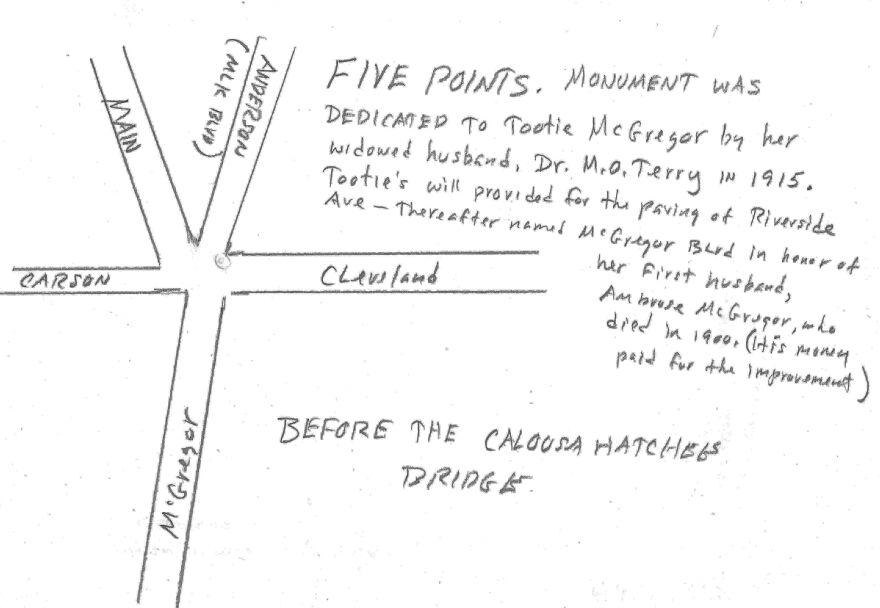 MAIN
ANDERSON
(MLK BLVD)
FIVE POINTS. MONUMENT WAS
DEDICATED TO Tootie McGregor by her
widowed husband, Dr. M.O. Terry IN 1915.
Tootie's will provided for the paving of Riverside
Ave — Thereafter named McGregor BLVD in honor of
her First husband,
Ambrose McGregor, who
died in 1900. (His money
paid for the improvement)
CARSON
Cleveland
McGregor
BEFORE THE CALOOSAHATCHEE
BRIDGE